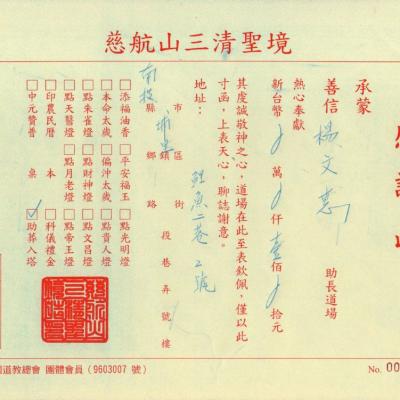 慈航山三清聖境
感謝狀
承蒙
善信 楊文惠 助長道場
熱心奉獻
新台幣 萬 仟 壹 佰 拾元
其度誠敬神之心，道場在此至表欽佩，僅以此
寸函，上表天心，聊誌謝意。
地址：
南投 縣市 埔里 鄉鎮區 路街 鯉魚二巷 2號 段巷弄號樓
□添福油香 □平安福玉 □點光明燈
□本命太歲 □偏沖太歲 □點貴人燈
□點朱雀燈 □點財神燈 □點文昌燈
□點天醫燈 □點月老燈 □點帝王燈
□印農民曆 本 □科儀禮金
□中元贊普 桌 ☑助葬入塔
國道教總會 團體會員 (9603007 號)
No. 00